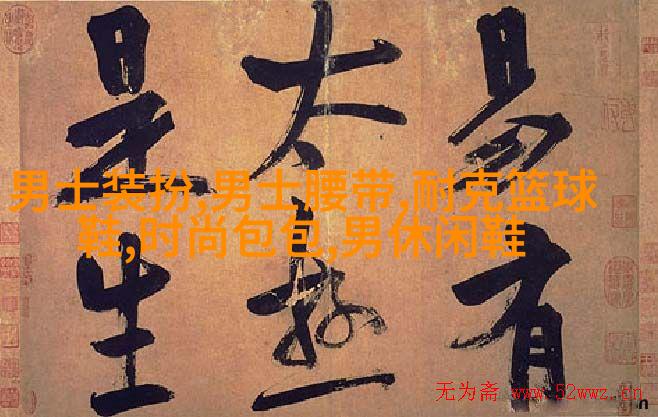 易有
太極
是生
男士装扮,男士腰带,耐克篮球
鞋,时尚包包,男休闲鞋
无为斋 www.52wwz.cn